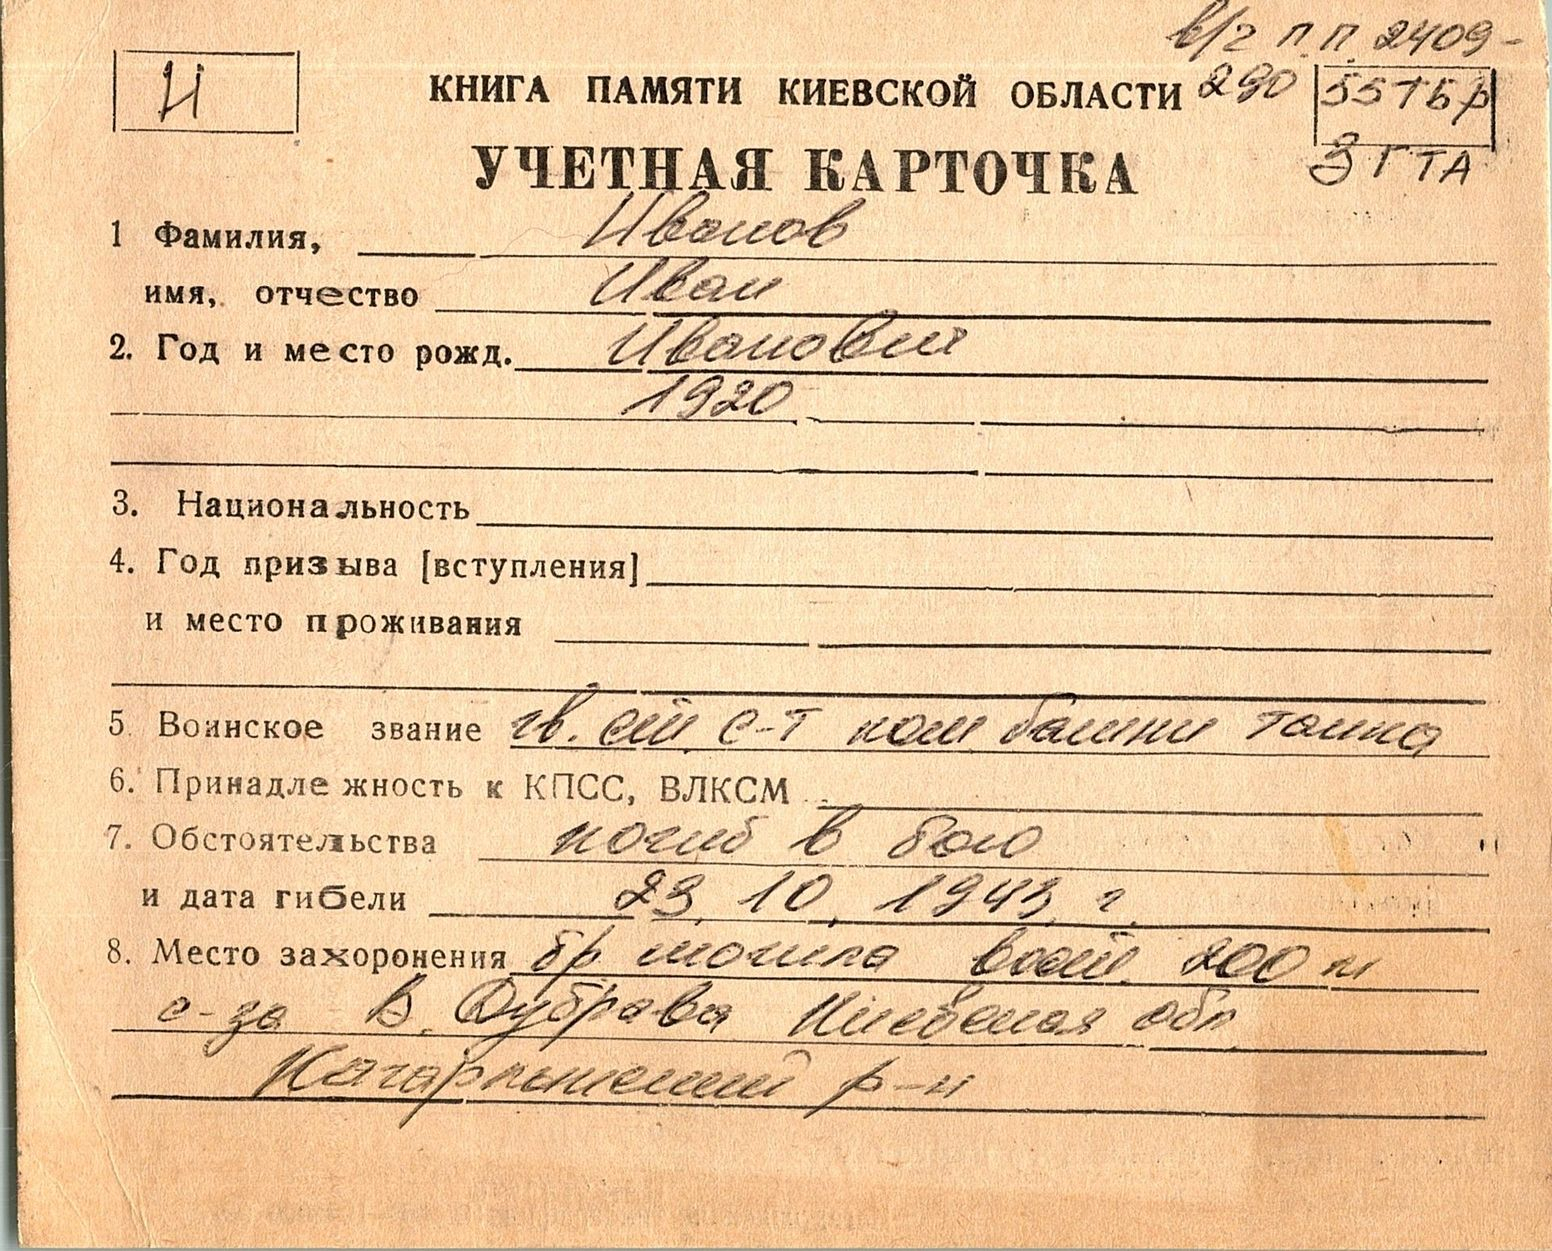 в/ч п.п. 2409-
И
КНИГА ПАМЯТИ КИЕВСКОЙ ОБЛАСТИ 290 55ТБр
УЧЕТНАЯ КАРТОЧКА 3 ГТА
1 Фамилия, Иванов
имя, отчество Иван
2. Год и место рожд. Иванович
1920
3. Национальность
4. Год призыва [вступления]
и место проживания
5. Воинское звание гв. ст с-т ком башни танка
6. Принадлежность к КПСС, ВЛКСМ
7. Обстоятельства погиб в бою
и дата гибели 23. 10. 1943 г.
8. Место захоронения бр могила вост. 200 м
с-за В. Дубрава Киевская обл
Кагарлыкский р-н